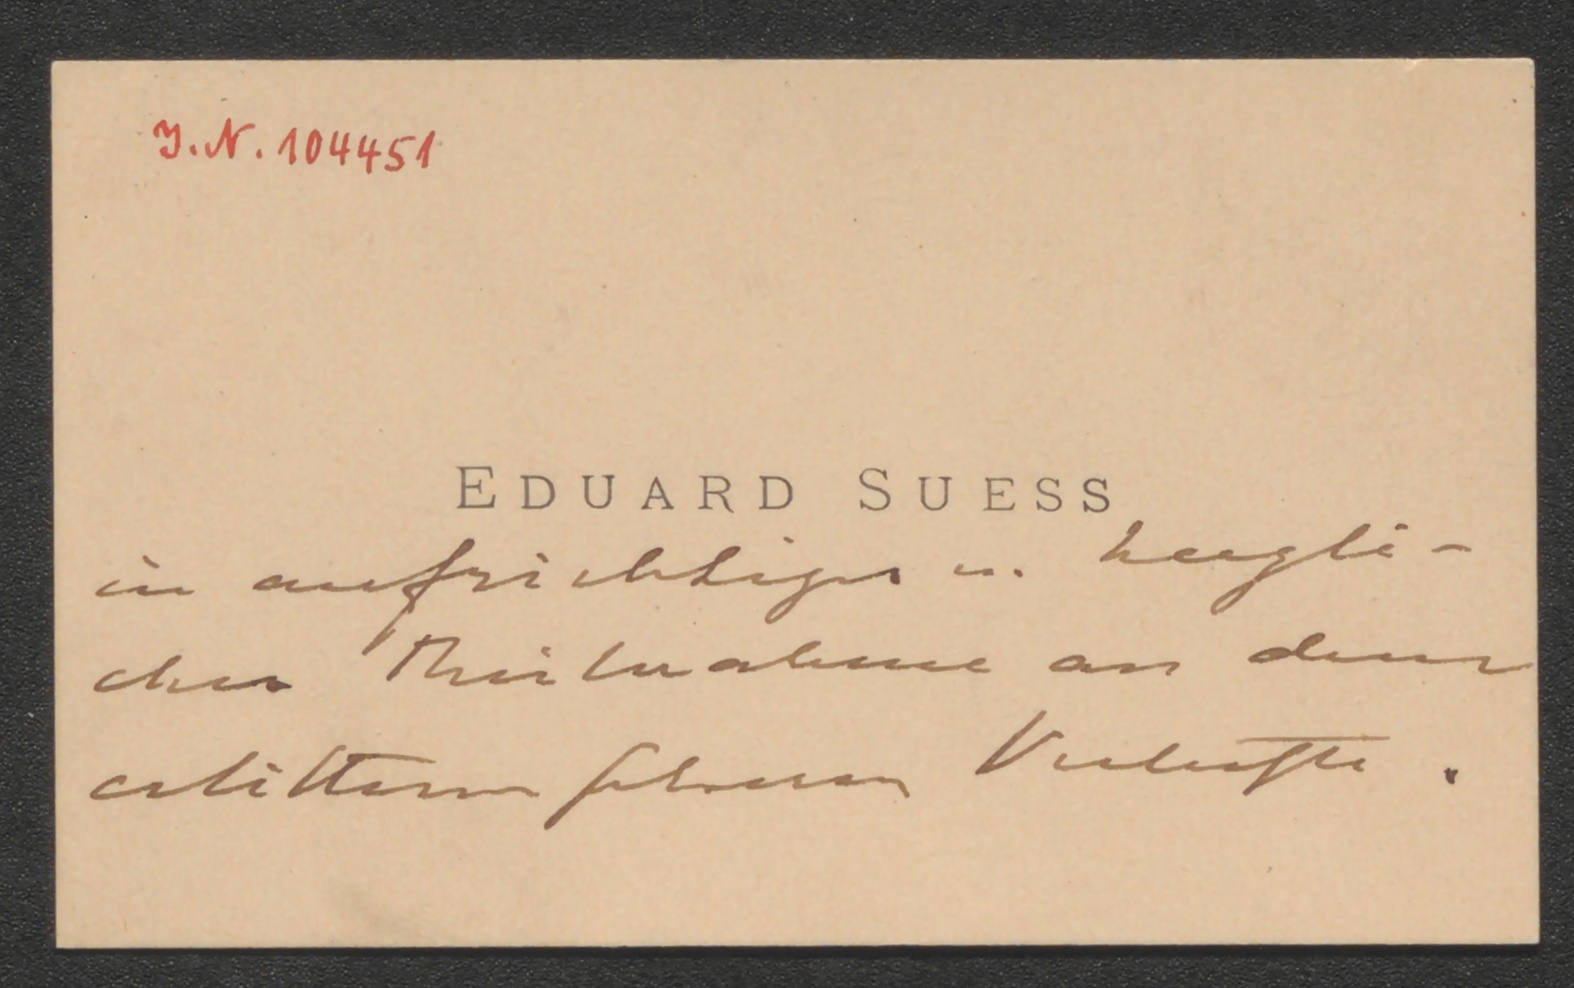 J.N. 104451
EDUARD SUESS
in aufrichtiger u. herzli-
cher Theilnahme an dem
erlittenen schweren Verluste.